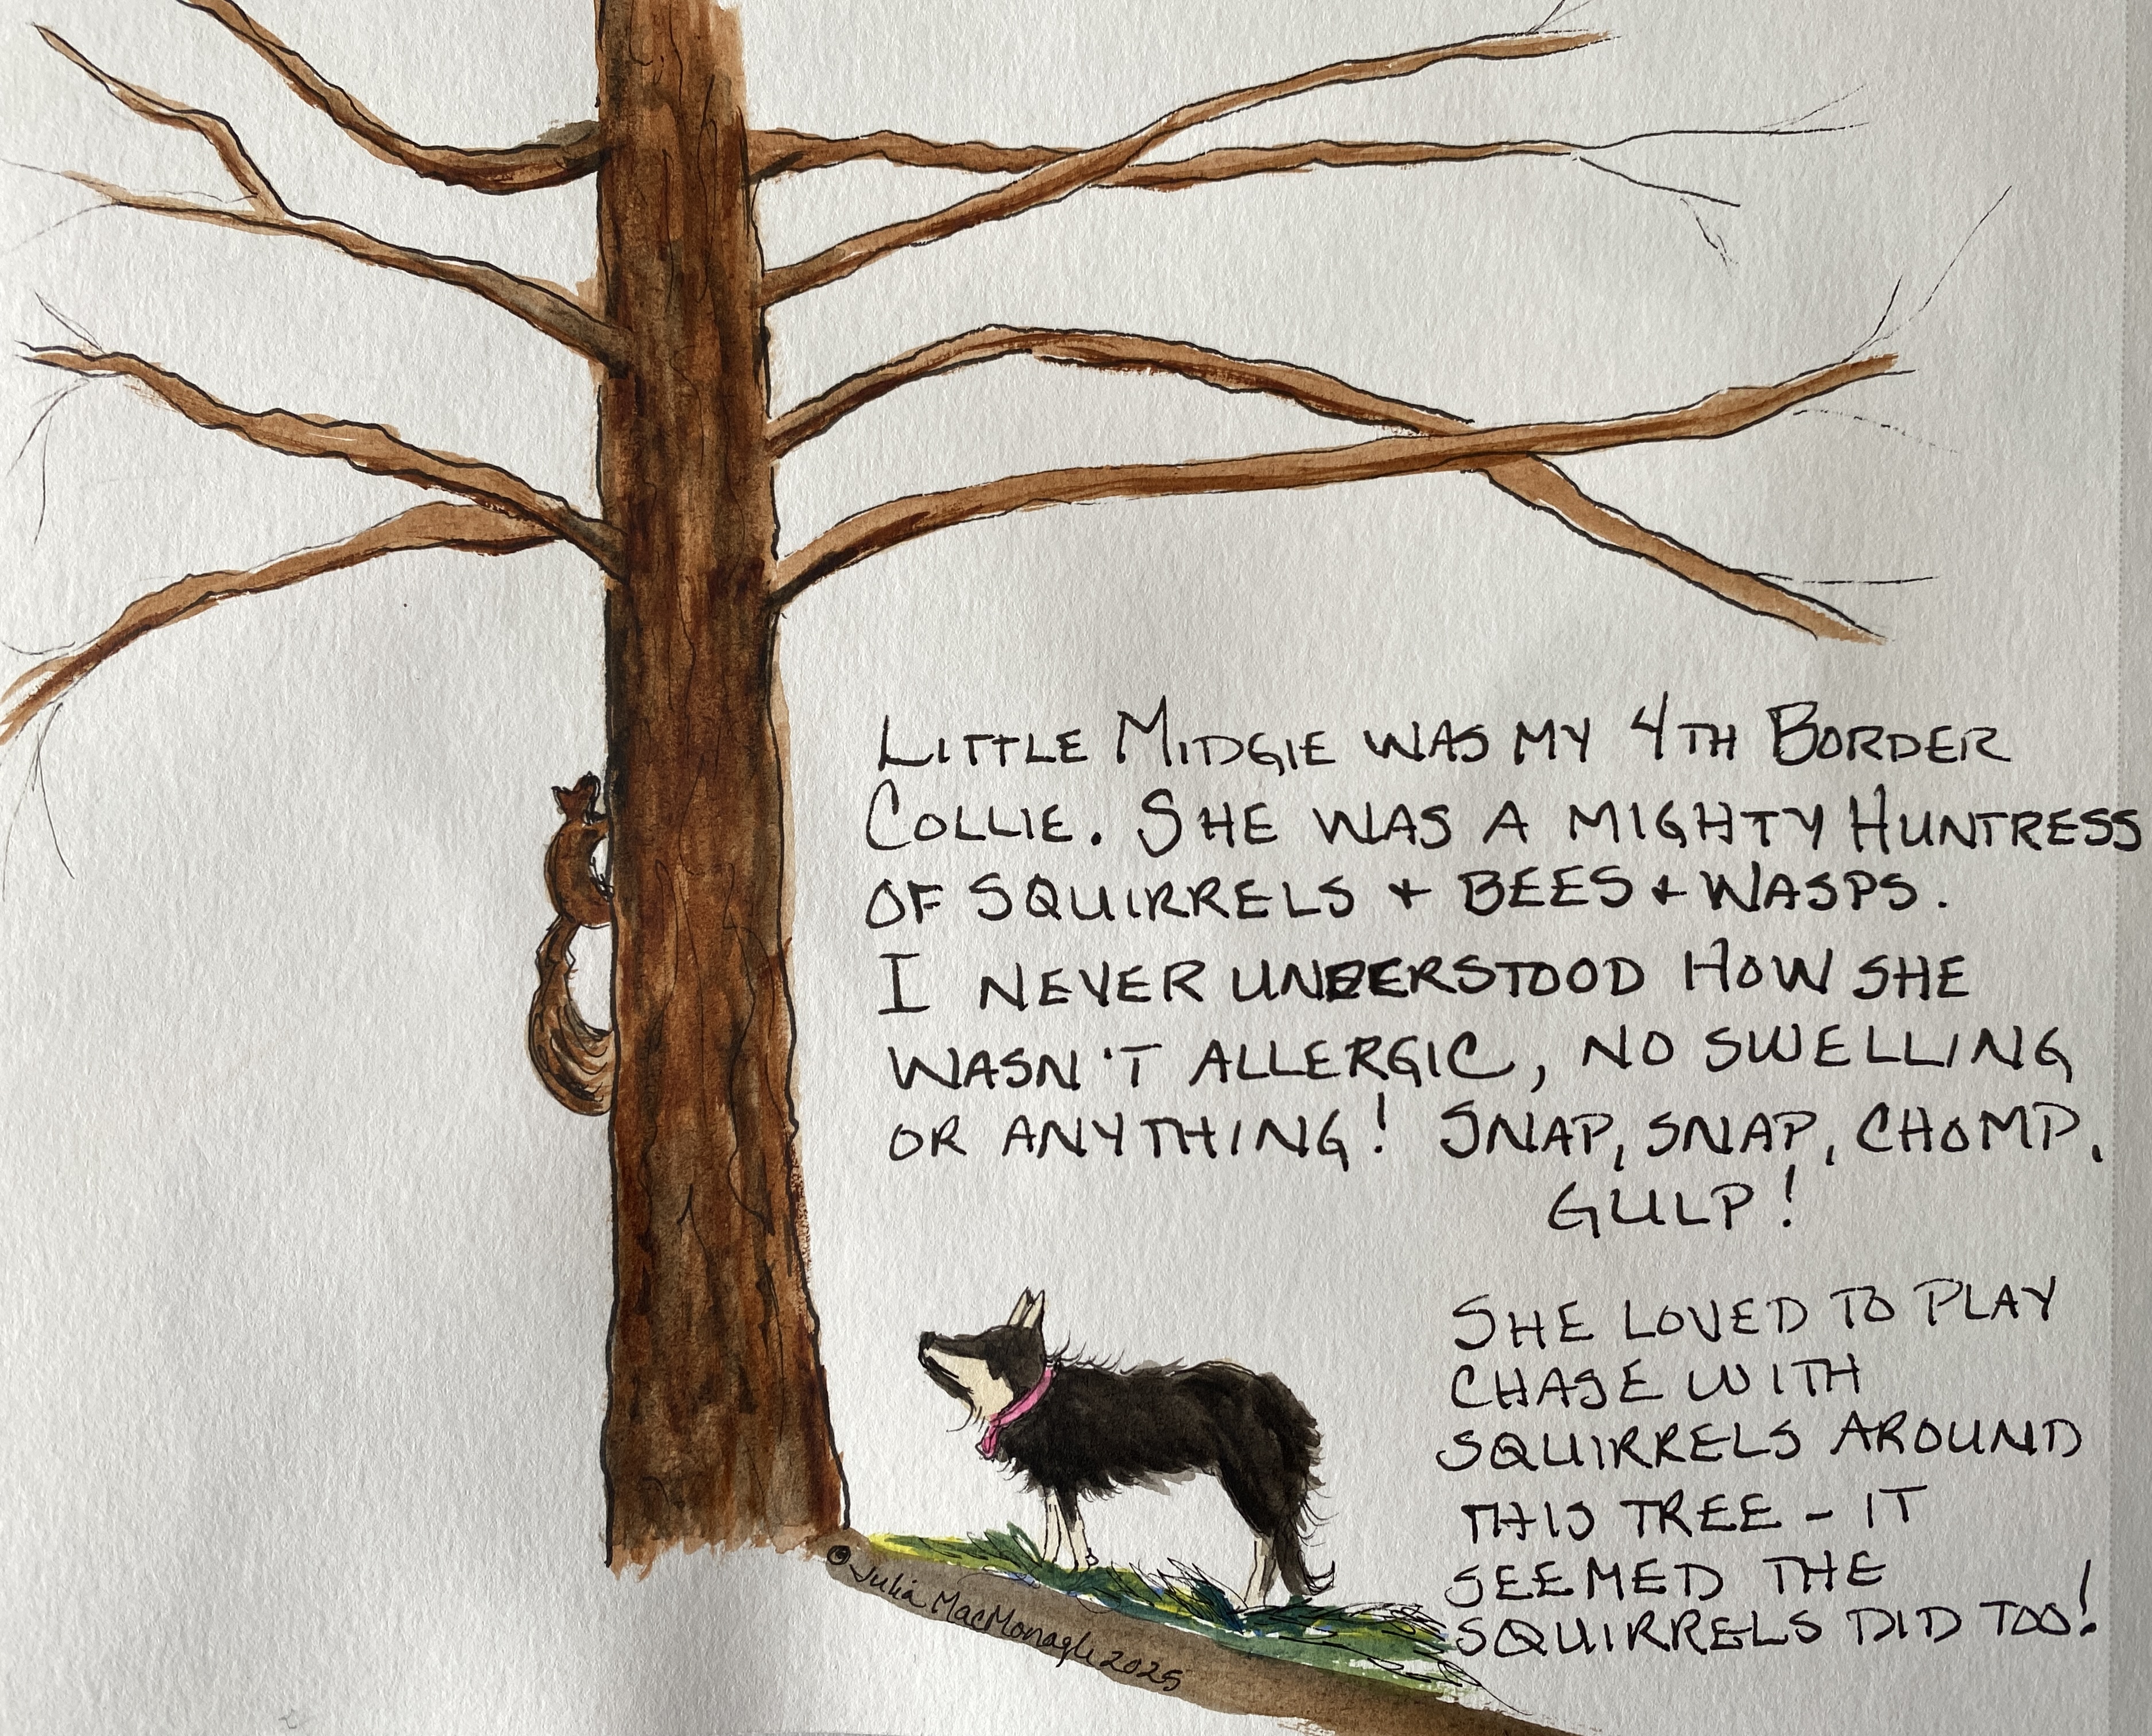 LITTLE MIDGIE WAS MY 4TH BORDER
COLLIE. SHE WAS A MIGHTY HUNTRESS
OF SQUIRRELS + BEES + WASPS.
I NEVER UNDERSTOOD HOW SHE
WASN'T ALLERGIC, NO SWELLING
OR ANYTHING! SNAP, SNAP, CHOMP,
GULP!
SHE LOVED TO PLAY
CHASE WITH
SQUIRRELS AROUND
THIS TREE - IT
SEEMED THE
SQUIRRELS DID TOO!
© Julia MacMonagle 2025